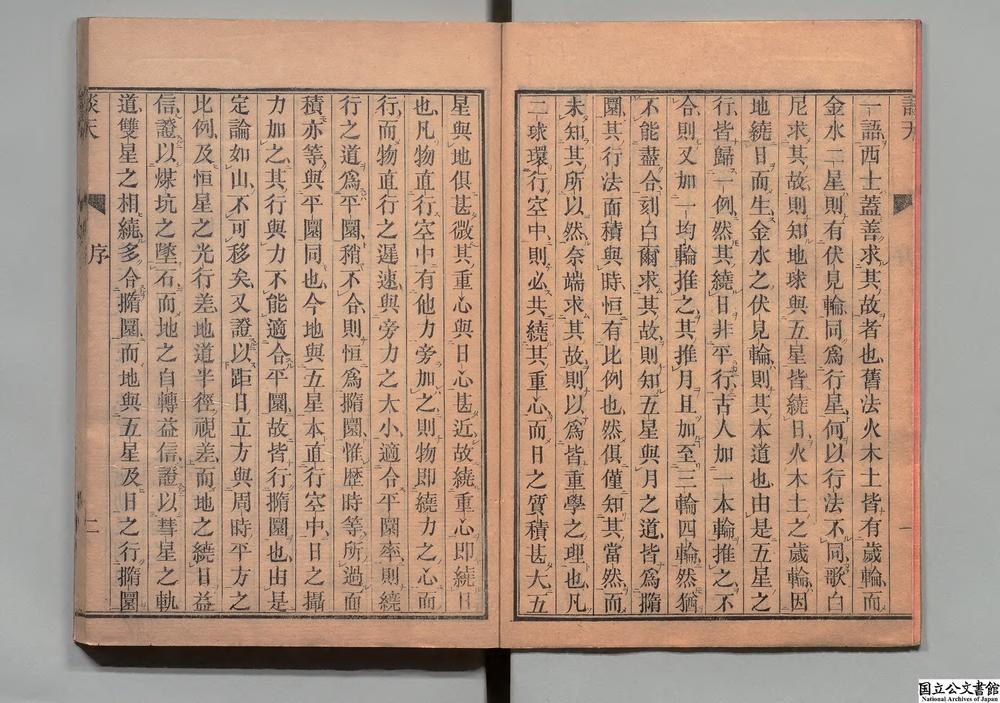 談天
一
一語西士蓋善求其故者也舊法火木土皆有歲輪而
金水二星則有伏見輪同爲行星何以行法不同歌白
尼求其故則知地球與五星皆繞日火木土之歲輪因
地繞日而生金水之伏見輪則其本道也由是五星之
行皆歸一例然其繞日非平行古人加一本輪推之不
合則又加一均輪推之其推月且加至三輪四輪然猶
不能盡合刻白爾求其故則知五星與月之道皆爲撱
圜其行法面積與時恒有比例也然俱僅知其當然而
未知其所以然奈端求其故則以爲皆重學之理也凡
二球環行空中則必共繞其重心而日之質積甚大五
星與地俱甚微其重心與日心甚近故繞重心即繞日
也凡物直行空中有他力旁加之則物即繞力之心而
行而物直行之遲速與旁力之大小適合平圜率則繞
行之道爲平圜稍不合則恒爲撱圜惟歷時等所過面
積亦等與平圜同也今地與五星本直行空中日之攝
力加之其行與力不能適合平圜故皆行撱圜也由是
定論如山不可移矣又證以距日立方與周時平方之
比例及恒星之光行差地道半徑視差而地之繞日益
信證以煤坑之墜石而地之自轉益信證以彗星之軌
道雙星之相繞多合撱圜而地與五星及日之行撱圜
談天
序
二
国立公文書館
National Archives of Japan